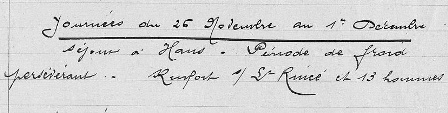 Journées du 26 Novembre au 1er Décembre
séjour à Hans - Période de froid
persévérant .- Renfort s/ Lt Rincé et 13 hommes